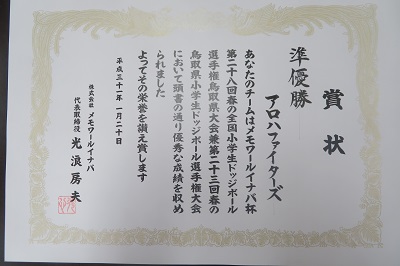 賞状
準優勝
アロハファイターズ
あなたのチームはメモワールイナバ杯
第二十八回春の全国小学生ドッジボール
選手権鳥取県大会兼第二十三回春の
鳥取県小学生ドッジボール選手権大会
において頭書の通り優秀な成績を収め
られました
よってその栄誉を讃え賞します
平成三十一年一月二十日
株式会社メモワールイナバ
代表取締役 光浪房夫